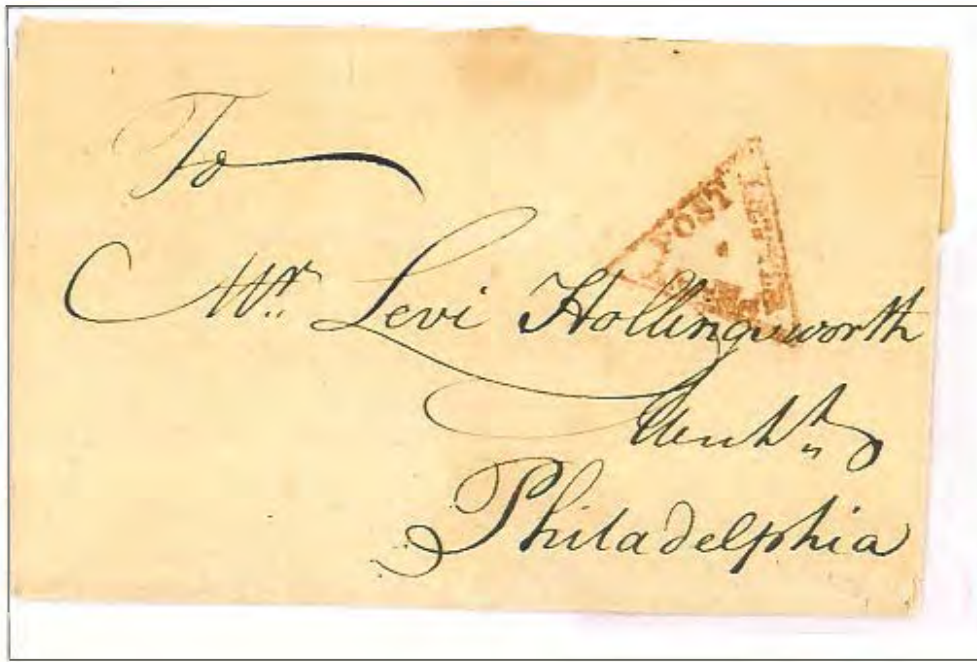 To
Mr. Levi Hollingsworth
Mercht.
Philadelphia
POST